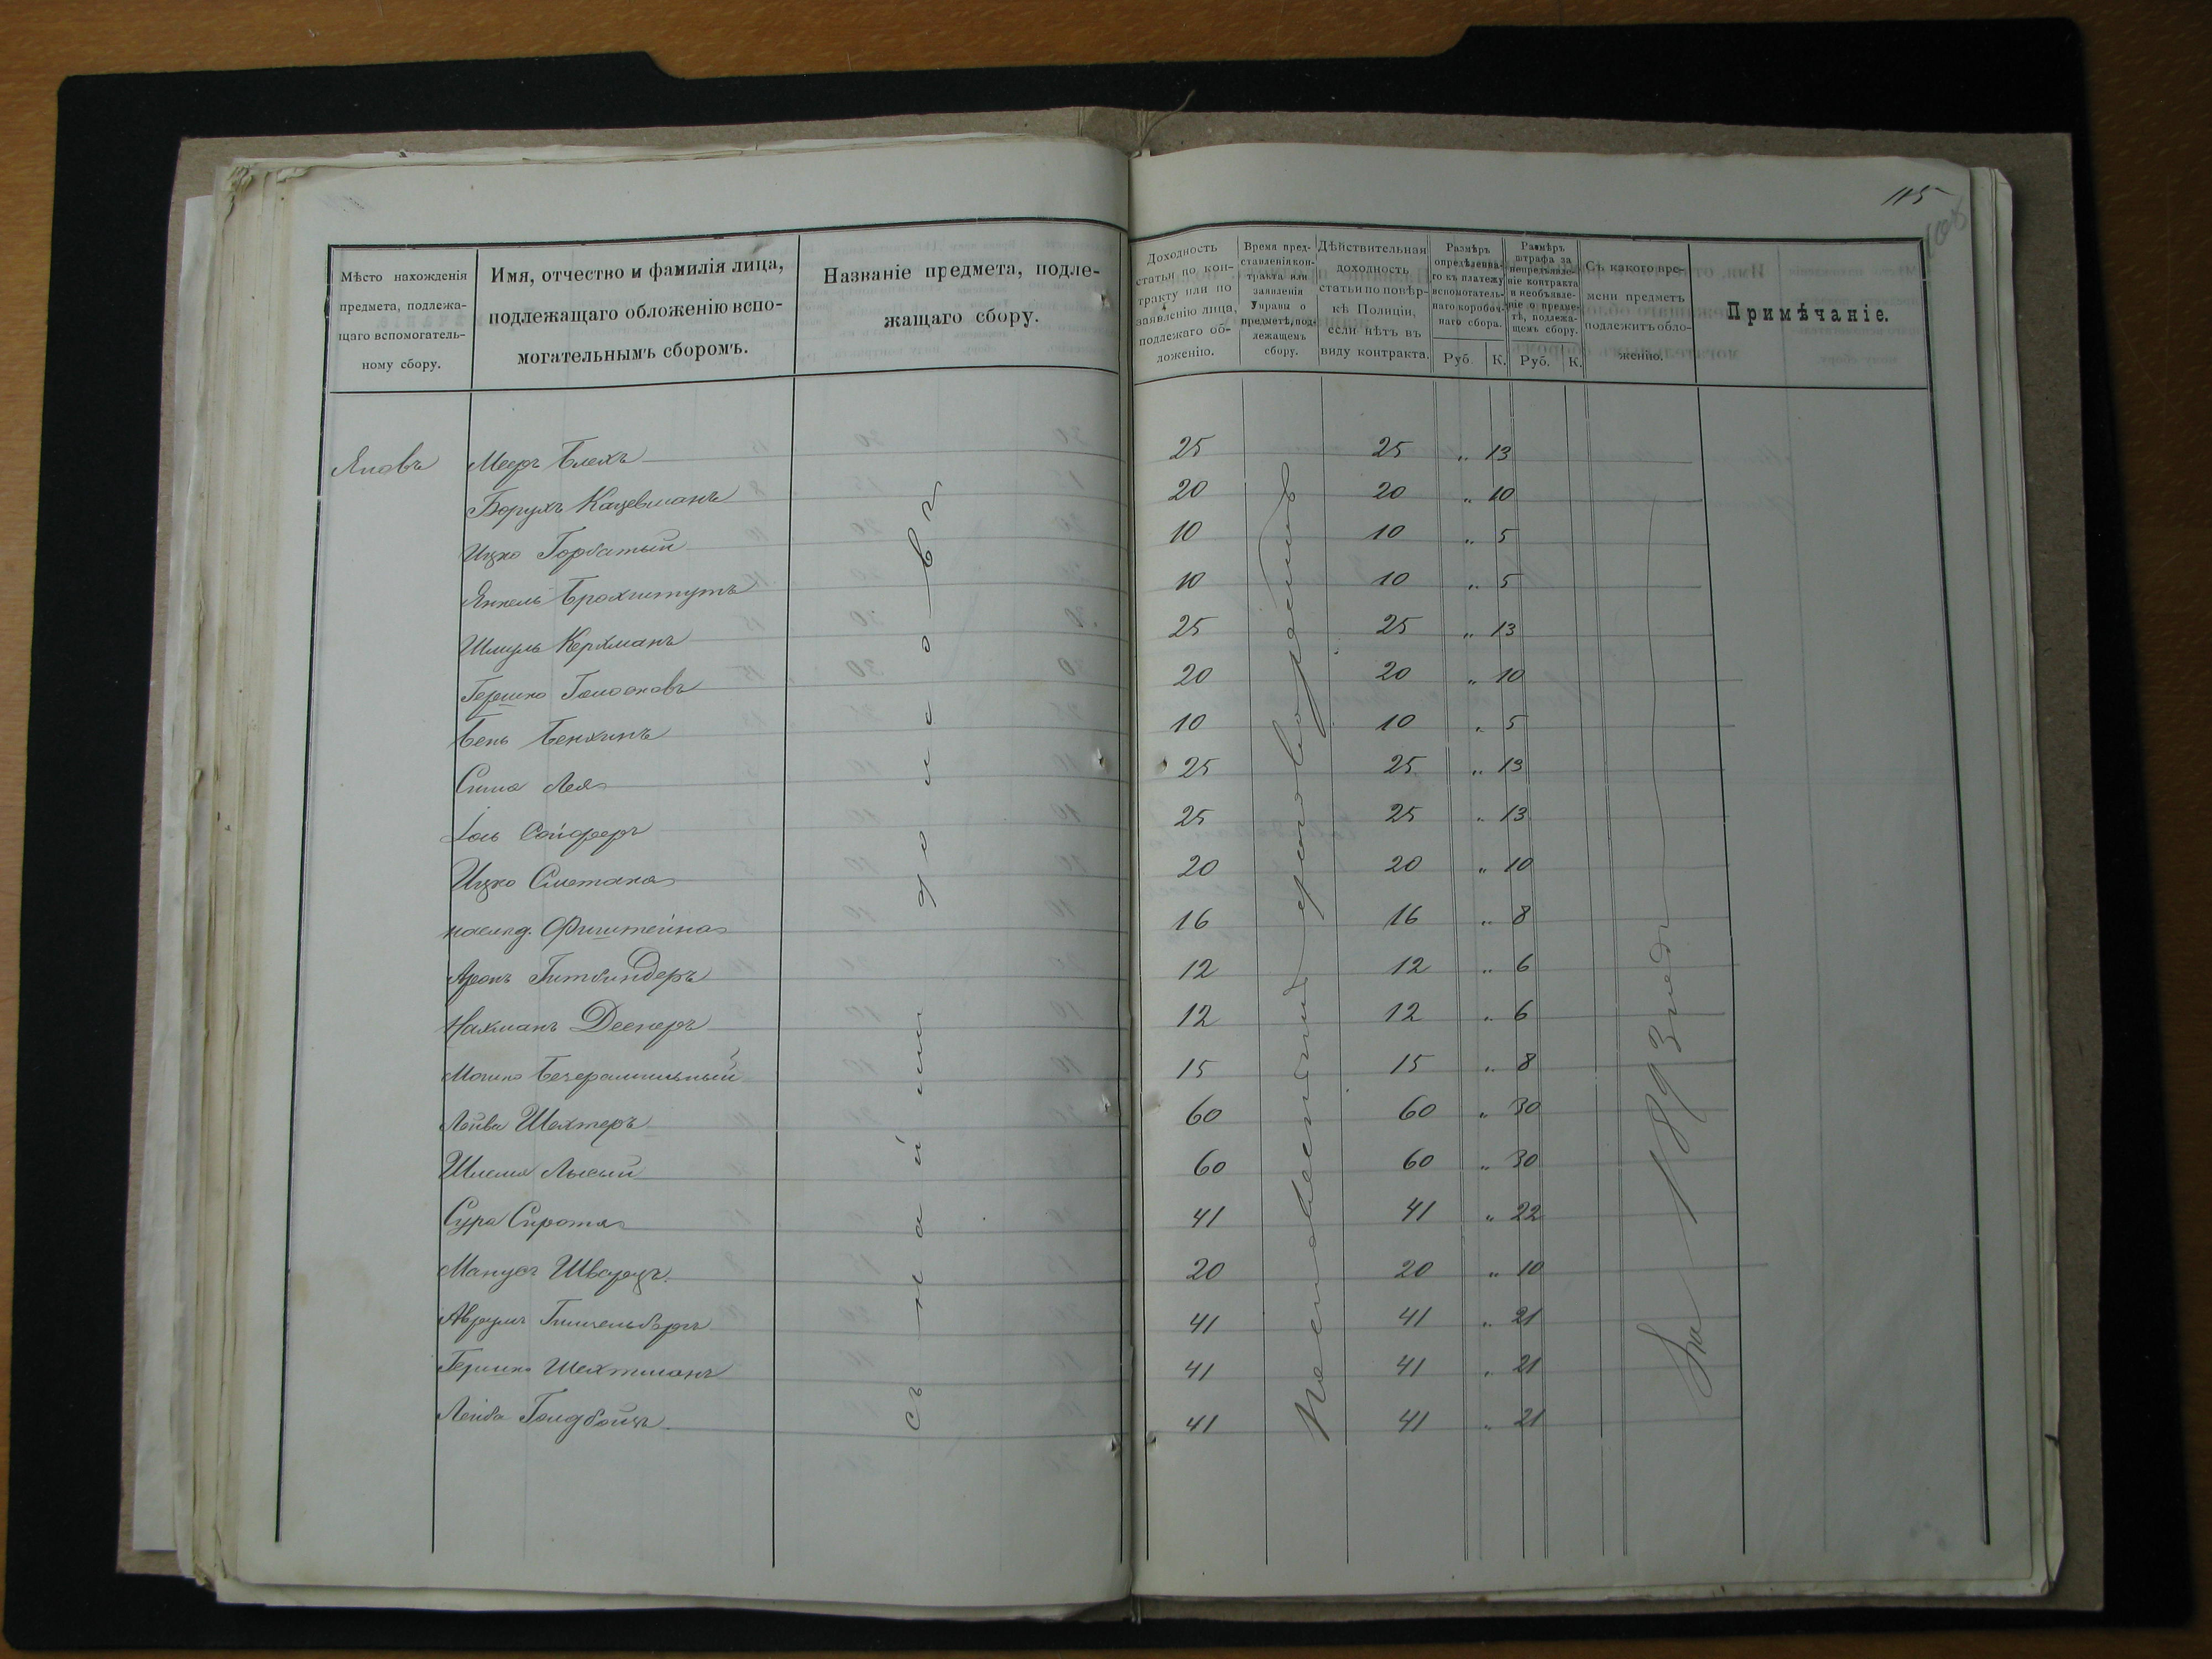 115
Мѣсто нахожденія
предмета, подлежа-
щаго вспомогатель-
ному сбору.
Имя, отчество и фамилія лица,
подлежащаго обложенію вспо-
могательнымъ сборомъ.
Названіе предмета, подле-
жащаго сбору.
Доходность
статьи по кон-
тракту или по
заявленію лица,
подлежаго об-
ложенію.
Время пред-
ставленія кон-
тракта или
заявленія
Управы о
предметѣ, под-
лежащемъ
сбору.
Дѣйствительная
доходность
статьи по повѣр-
кѣ Полиціи,
если нѣтъ въ
виду контракта.
Размѣръ
опредѣленна-
го къ платежу
вспомогатель-
наго коробоч-
наго сбора.
Руб. К.
Размѣръ
штрафа за
непредъявле-
ніе контракта
и необъявле-
ніе о предме-
тѣ, подлежа-
щемъ сбору.
Руб. К.
Съ какого вре-
мени предметъ
подлежитъ обло-
женію.
Примѣчаніе.
Яновъ Мееръ Блехъ 25 25 „ 13
Борухъ Кацевманъ 20 20 „ 10
Ицко Горбатый 10 10 „ 5
Янкель 10 10 „ 5
Шмуль Керхманъ 25 25 „ 13
Гершко 20 20 „ 10
Бень 10 10 „ 5
Сима Лея 25 25 „ 13
Іось Сойферъ 25 25 „ 13
Ицко Сметана 20 20 „ 10
наслѣд. Фишштейна 16 16 „ 8
Аронъ Гитбиндеръ 12 12 „ 6
Нахманъ 12 12 „ 6
Мошко 15 15 „ 8
Лейба Шехтеръ 60 60 „ 30
Шлема Лысый 60 60 „ 30
Сура Сирота 41 41 „ 22
Манусъ Шварцъ 20 20 „ 10
Аврумъ 41 41 „ 21
Гершко Шехтманъ 41 41 „ 21
Лейба 41 41 „ 21
съ найми домовъ
За 1893 годъ